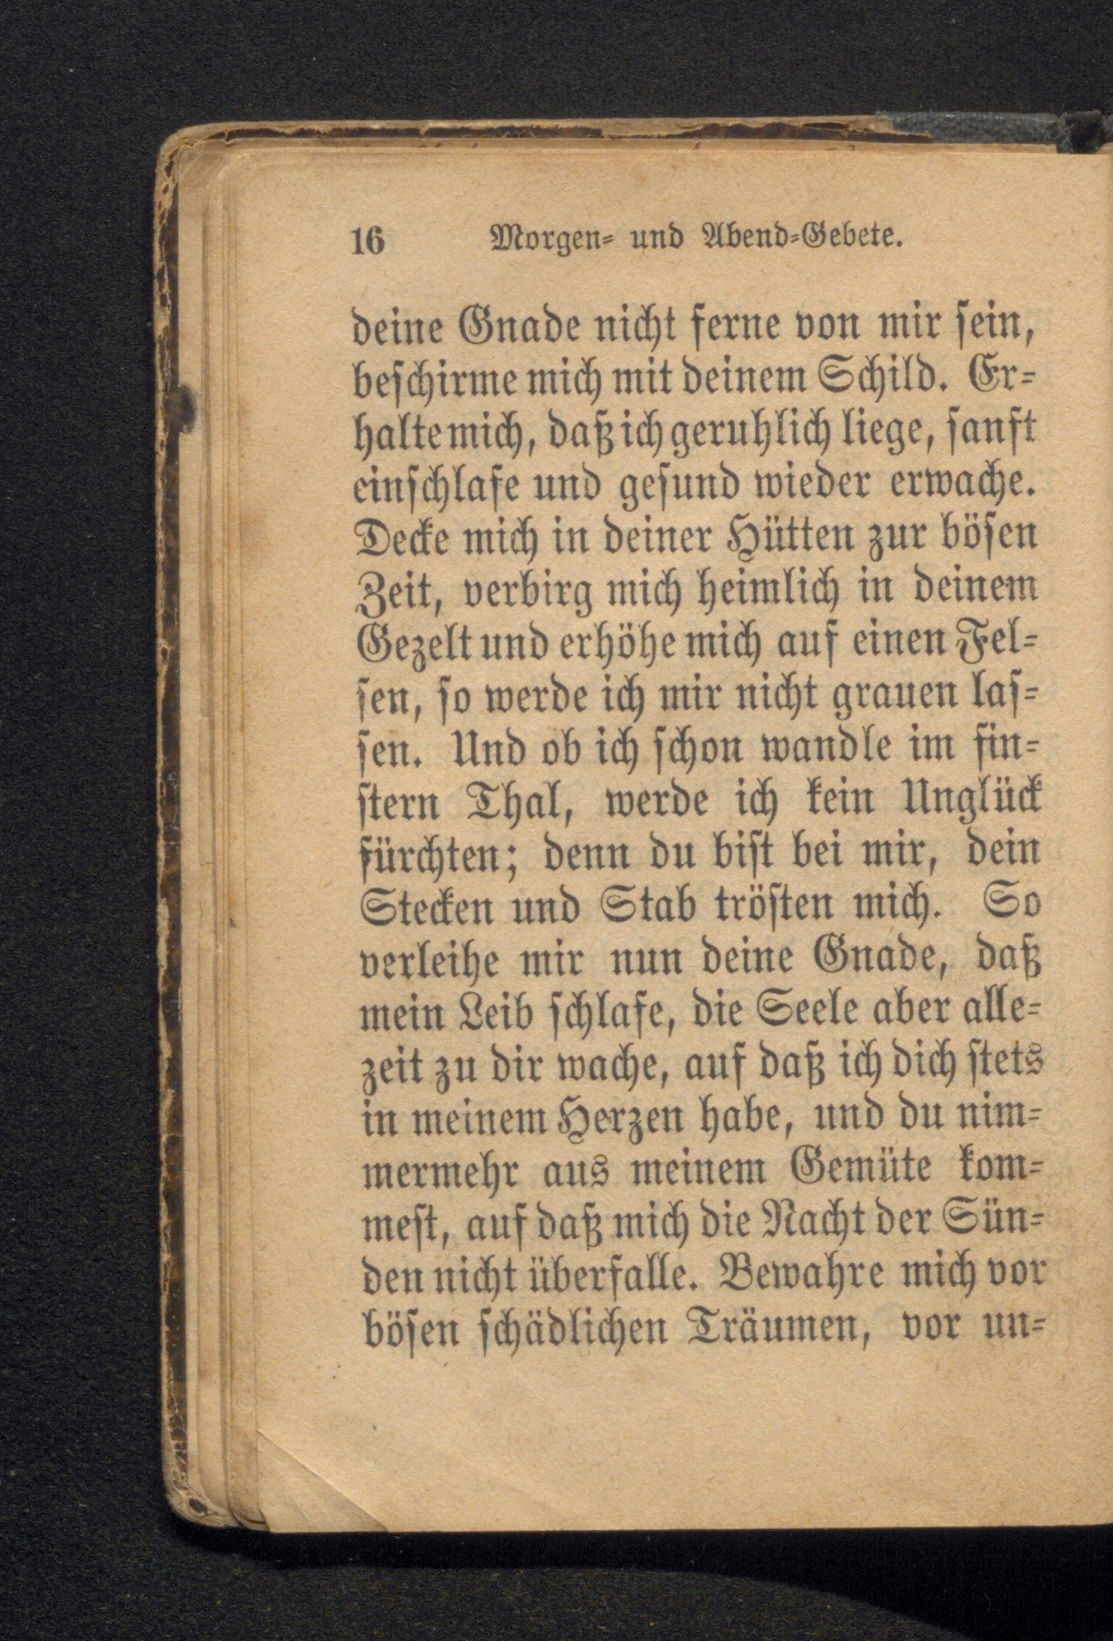 16 Morgen- und Abend-Gebete.
deine Gnade nicht ferne von mir sein,
beschirme mich mit deinem Schild. Er-
halte mich, daß ich geruhlich liege, sanft
einschlafe und gesund wieder erwache.
Decke mich in deiner Hütten zur bösen
Zeit, verbirg mich heimlich in deinem
Gezelt und erhöhe mich auf einen Fel-
sen, so werde ich mir nicht grauen las-
sen. Und ob ich schon wandle im fin-
stern Thal, werde ich kein Unglück
fürchten; denn du bist bei mir, dein
Stecken und Stab trösten mich. So
verleihe mir nun deine Gnade, daß
mein Leib schlafe, die Seele aber alle-
zeit zu dir wache, auf daß ich dich stets
in meinem Herzen habe, und du nim-
mermehr aus meinem Gemüte kom-
mest, auf daß mich die Nacht der Sün-
den nicht überfalle. Bewahre mich vor
bösen schädlichen Träumen, vor un-